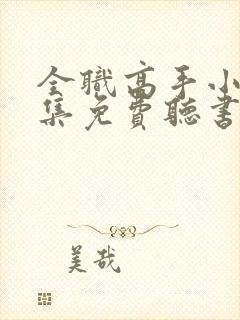 全職高手小
集免費聽書
美哉